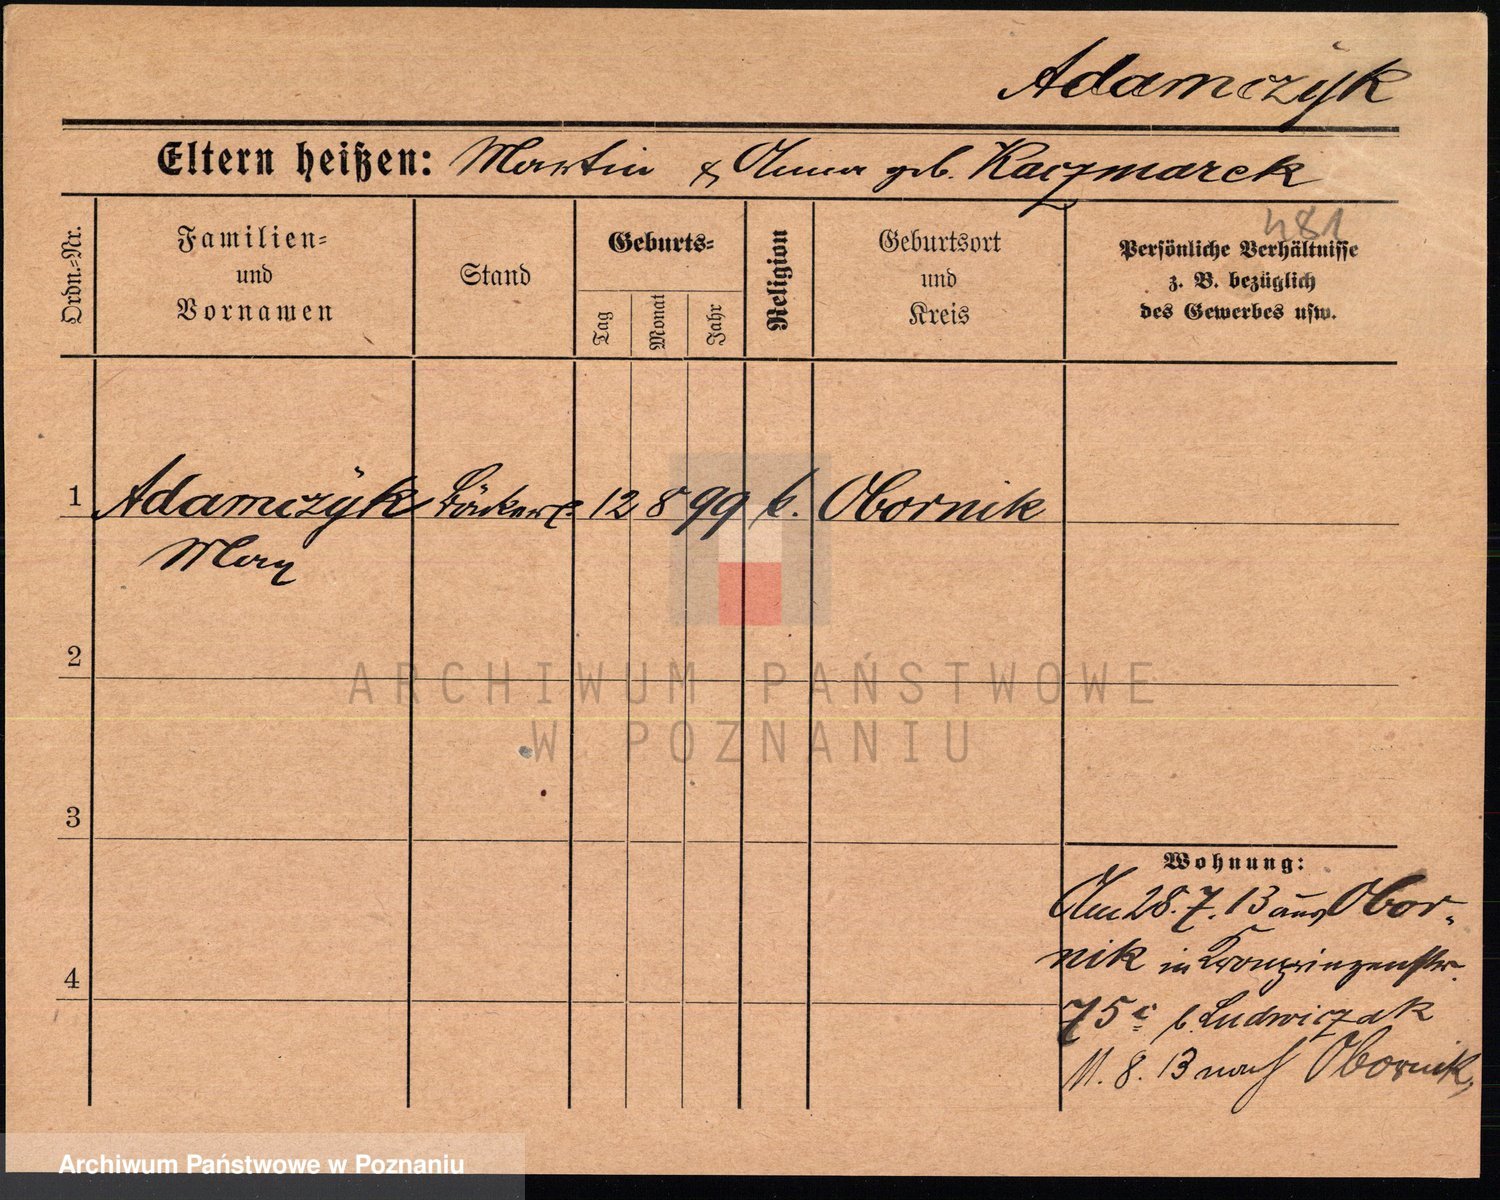 Adamczyk
Eltern heißen: Martin & Anna geb. Kaczmarek
481
Ordn.-Nr.
Familien-
und
Vornamen
Stand
Geburts-
Tag
Monat
Jahr
Religion
Geburtsort
und
Kreis
Persönliche Verhältnisse
z. B. bezüglich
des Gewerbes usw.
1 Adamczyk Bäckerl. 12 8 99 k. Obornik
Max
2
3
4
Wohnung:
Am 28.7.13 aus Obor-
nik in Kronprinzenstr.
75c b. Ludwiczak
11. 8. 13 nach Obornik
ARCHIWUM PAŃSTWOWE
W POZNANIU
Archiwum Państwowe w Poznaniu